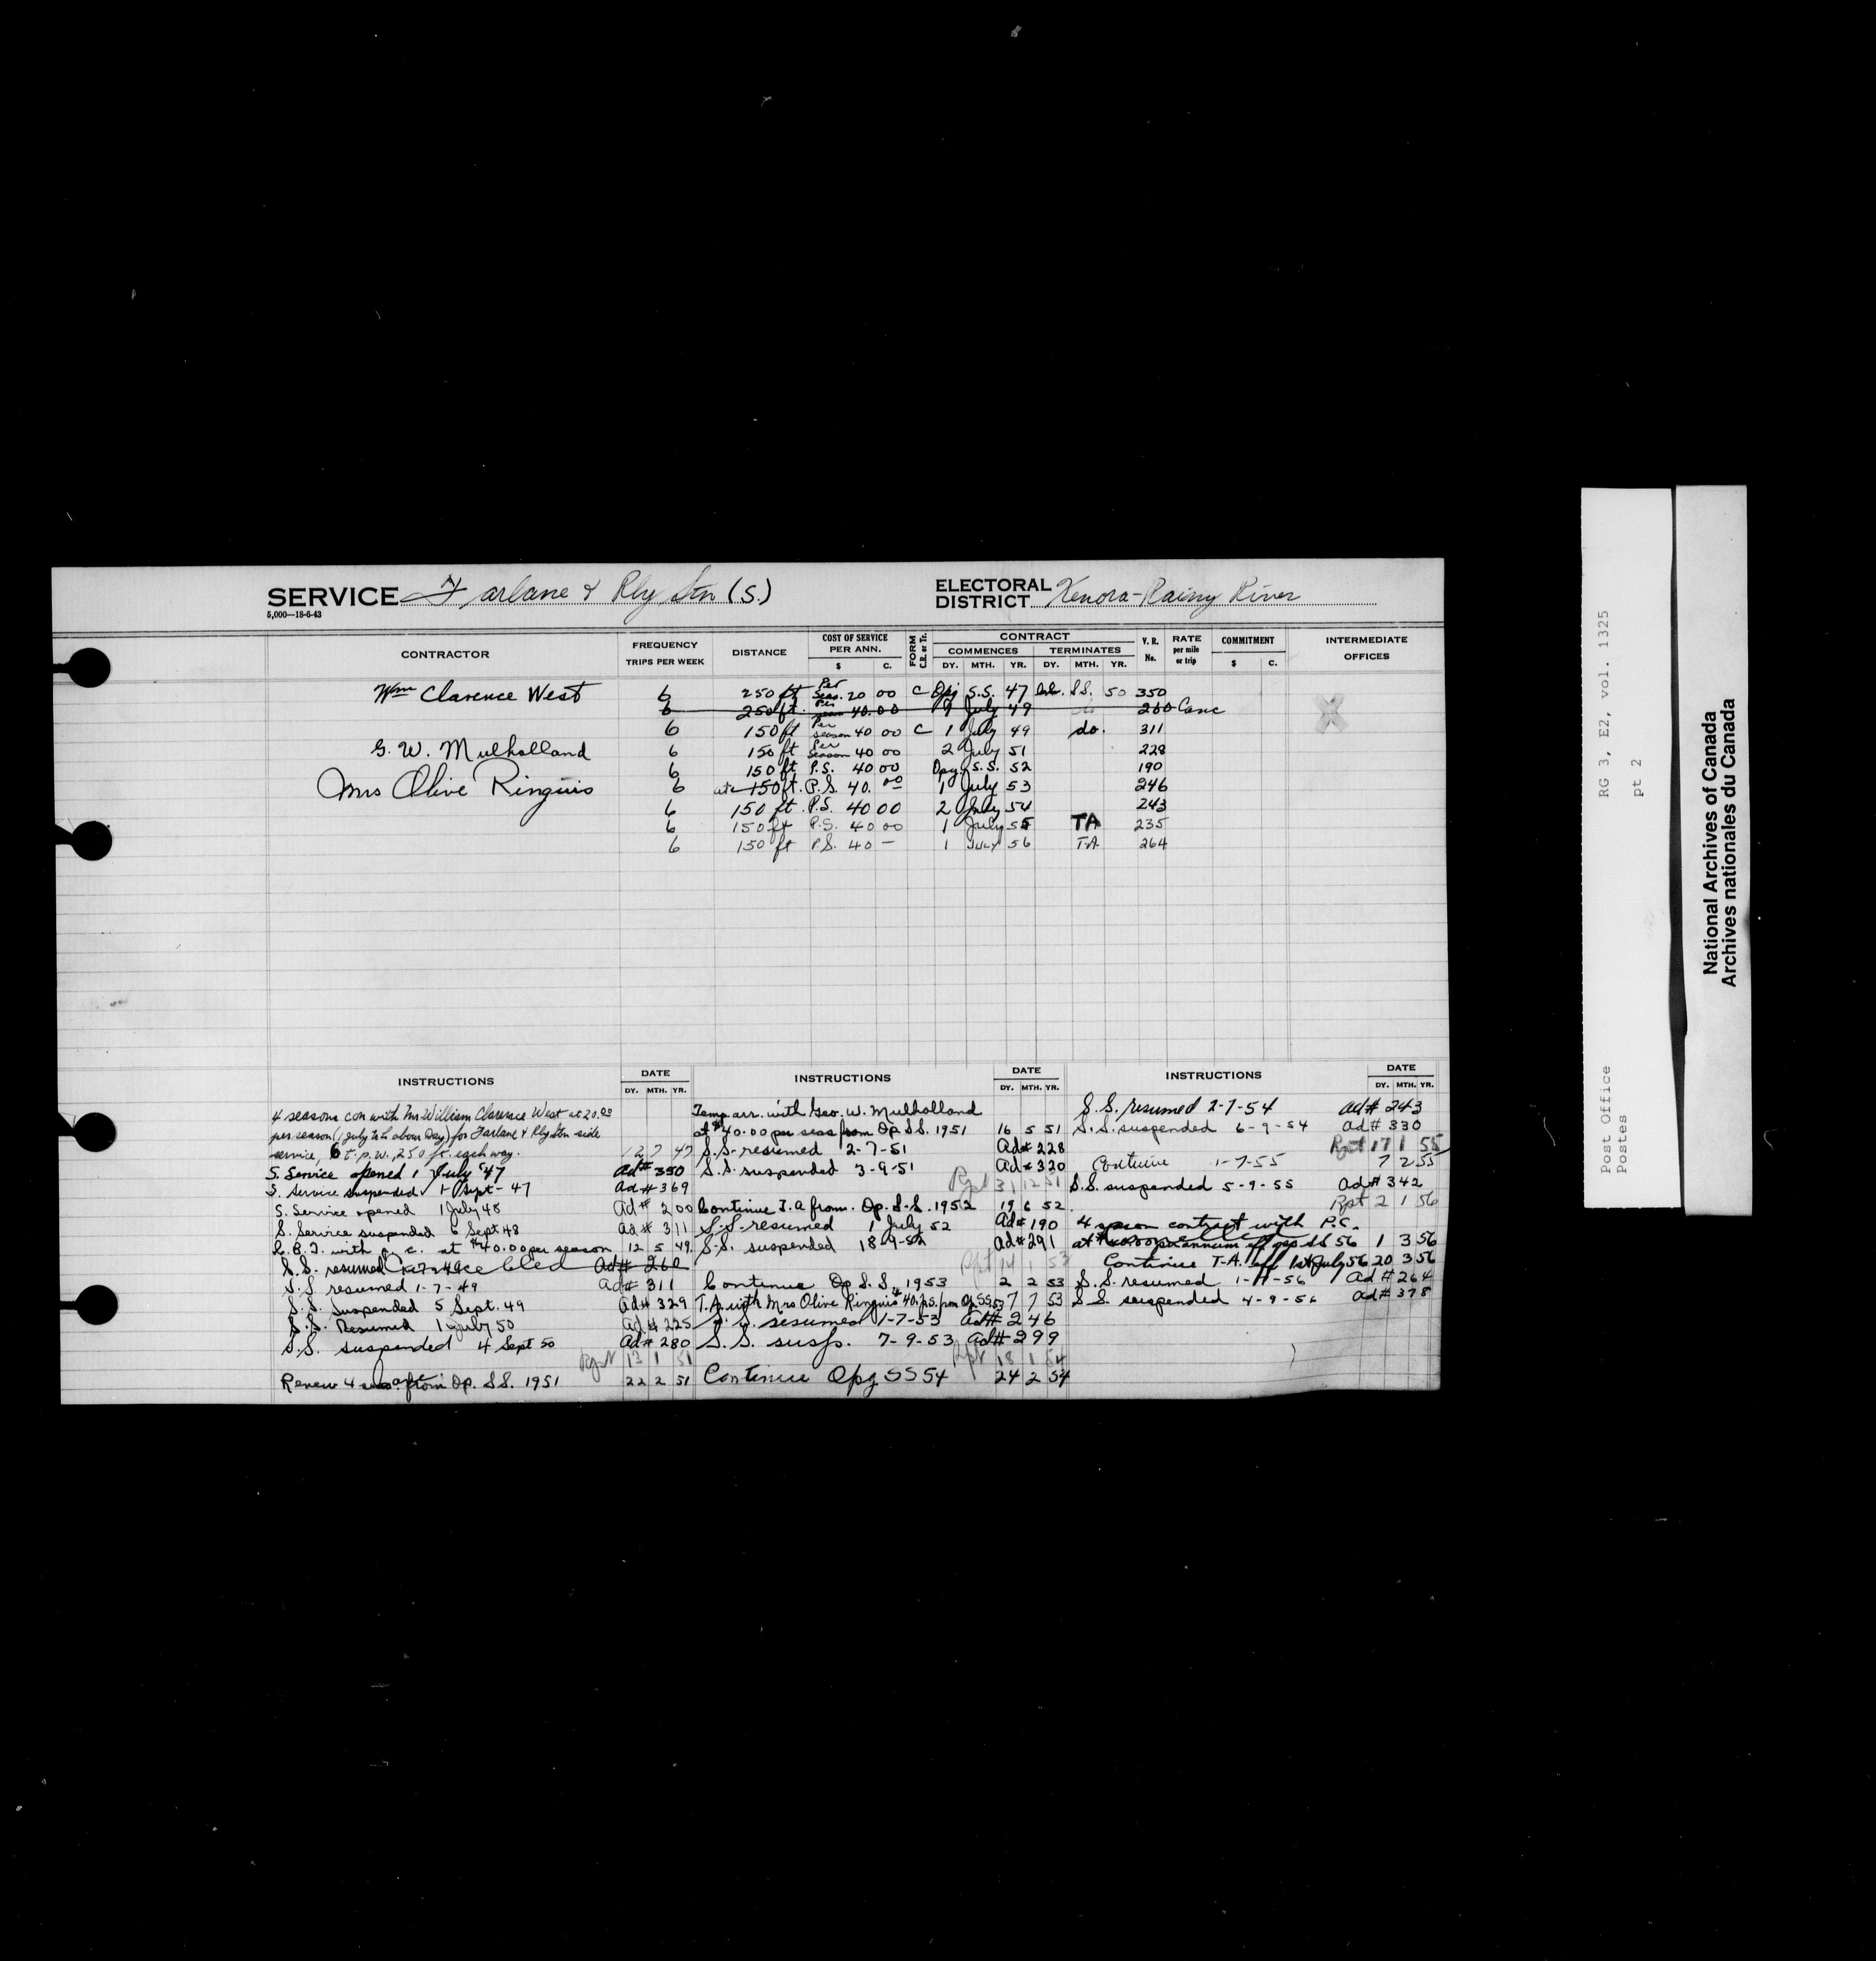 SERVICE Farlane & Rly Stn (S.)
5,000—18-6-43
ELECTORAL DISTRICT Kenora-Rainy River
CONTRACTOR FREQUENCY TRIPS PER WEEK DISTANCE COST OF SERVICE PER ANN. $ C. FORM C.R. or Tr. CONTRACT COMMENCES DY. MTH. YR. TERMINATES DY. MTH. YR. V. R. No. RATE per mile or trip COMMITMENT $ C. INTERMEDIATE OFFICES
Wm Clarence West 6 250 ft Per Seas. 20 00 C Opg S.S. 47 S.S. 50 350
6 250 ft. Per 40.00 1 July 49 260 Canc
6 150 ft Per season 40 00 C 1 July 49 do. 311
G. W. Mulholland 6 150 ft Per season 40 00 2 July 51 228
6 150 ft P.S. 40 00 Opg. S.S. 52 190
Mrs Olive Ringuis 6 at 150 ft. P.S. 40. 00 1 July 53 246
6 150 ft. P.S. 40 00 2 July 54 243
6 150 ft P.S. 40 00 1 July 55 TA 235
6 150 ft P.S. 40 — 1 July 56 T.A 264
INSTRUCTIONS DATE DY. MTH. YR.
4 seasons con with Mr William Clarence West at 20.00
per season (1 July to Labour Day) for Farlane & Rly Stn side
service, 6 t.p.w., 250 ft. each way. 12 7 47
S. Service opened 1 July 47 Ad# 350
S. Service suspended 1 Sept - 47 Ad# 369
S. Service opened 1 July 48 Ad# 200
S. Service suspended 6 Sept 48 Ad# 311
C.B.T. with P. C. at $40.00 per season 12 5 49
S.S. resumed Cancelled Ad# 260
S.S resumed 1-7-49 Ad# 311
S.S. Suspended 5 Sept. 49 Ad# 329
S.S. Resumed 1 July 50 Ad# 225
S.S. suspended 4 Sept 50 Ad# 280
Rpt 13 1 51
Renew 4 seas. from Op. S.S. 1951 22 2 51
INSTRUCTIONS DATE DY. MTH. YR.
Temp arr. with Geo. W. Mulholland
at $40.00 per seas from Op S.S. 1951 16 5 51
S.S. resumed 2-7-51 Ad# 228
S.S. suspended 3-9-51 Ad# 320
Rpt 31 12 51
Continue T.A from. Op. S.S. 1952 19 6 52
S.S. resumed 1 July 52 Ad# 190
S.S. suspended 18-9-52 Ad# 291
Rpt 14 1 53
Continue Op S.S. 1953 2 2 53
T.A. with Mrs Olive Ringuis $40. p.s. from Op SS 53 7 7 53
S.S. resumed 1-7-53 Ad# 246
S.S. susp. 7-9-53 Ad# 299
Rpt 18 1 54
Continue Opg SS 54 24 2 54
INSTRUCTIONS DATE DY. MTH. YR.
S.S. resumed 2-7-54 Ad# 243
S.S. suspended 6-9-54 Ad# 330
Rpt 17 1 55
Continue 1-7-55 7 2 55
S.S. suspended 5-9-55 Ad# 342
Rpt 2 1 56
4 season contract with P.C.
at $40.00 per annum eff SS 56 1 3 56
Continue T.A. eff 1st July 56 20 3 56
S.S. resumed 56 Ad# 264
S.S. suspended 4-9-56 Ad# 378
Post Office
Postes
RG 3, E2, vol. 1325
pt 2
National Archives of Canada
Archives nationales du Canada